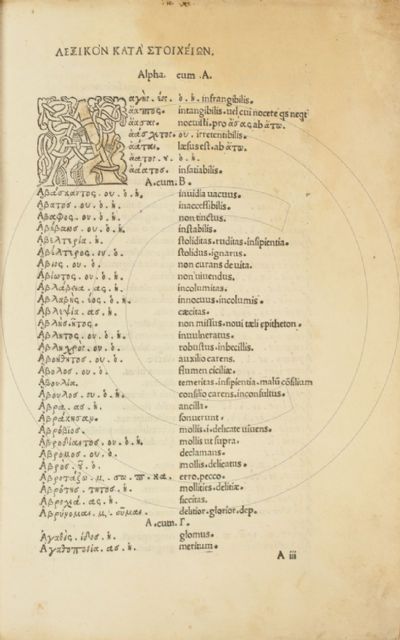 ΛΕΞΙΚΟΝ ΚΑΤΑ ΣΤΟΙΧΕΙΩΝ.
Alpha. cum .A.
ἀαγὴς. έος. ὁ. ἡ. infrangibilis.
ἄαπτος. intangibilis. uel cui nocere qs neqt
ἄασαι. nocuisti. pro ἄσας ab ἄτω.
ἀάσχετος. ου. irretentibilis.
ἀάται. læsus est. ab ἄτω.
ἄατος. ου. ὁ. ἡ.
ἀάατος. insatiabilis.
A. cum. B.
Αβάσκαντος. ου. ὁ. ἡ. inuidia uacuus.
Αβατος. ου. ὁ. ἡ. inaccessibilis.
Αβαφος. ου. ὁ. ἡ. non tinctus.
Αβέβαιος. ου. ὁ. ἡ. instabilis.
Αβελτηρία. ἡ. stoliditas. ruditas. insipientia.
Αβέλτερος. ου. ὁ. stolidus. ignarus.
Αβιος. ου. ὁ. non curans de uita.
Αβίωτος. ου. ὁ. ἡ. non uiuendus.
Αβλάβεια. ας. ἡ. incolumitas.
Αβλαβὴς. έος. ὁ. ἡ. innocuus. incolumis.
Αβλεψία. ας. ἡ. cæcitas.
Αβλὴς. ῆτος. non missus. noui tæli epitheton.
Αβλητος. ου. ὁ. ἡ. inuulneratus.
Αβληχρος. ου. ὁ. robustus. imbecillis.
Αβοήθητος. ου. ὁ. auxilio carens.
Αβολος. ου. ὁ. flumen ciciliæ.
Αβουλία. temeritas. insipientia. malū cōsilium
Αβουλος. ου. ὁ. ἡ. consilio carens. inconsultus.
Αβρα. ας. ἡ. ancilla.
Αβράχησαν. sonuerunt.
Αβρόβιος. mollis. i. delicate uiuens.
Αβροδίαιτος. ου. ὁ. ἡ. mollis ut supra.
Αβρομος. ου. ὁ. declamans.
Αβρὸς. οῦ. ὁ. mollis. delicatus.
Αβροτάζω. erro. pecco.
Αβρότης. τητος. ἡ. mollities. delitiæ.
Αβροχία. ας. ἡ. siccitas.
Αβρύνομαι. delitior. glorior. dep.
A. cum. Γ.
Αγαθὶς. ίδος. ἡ. glomus.
Αγαθοποιία. ας. ἡ. meritum.
A iii